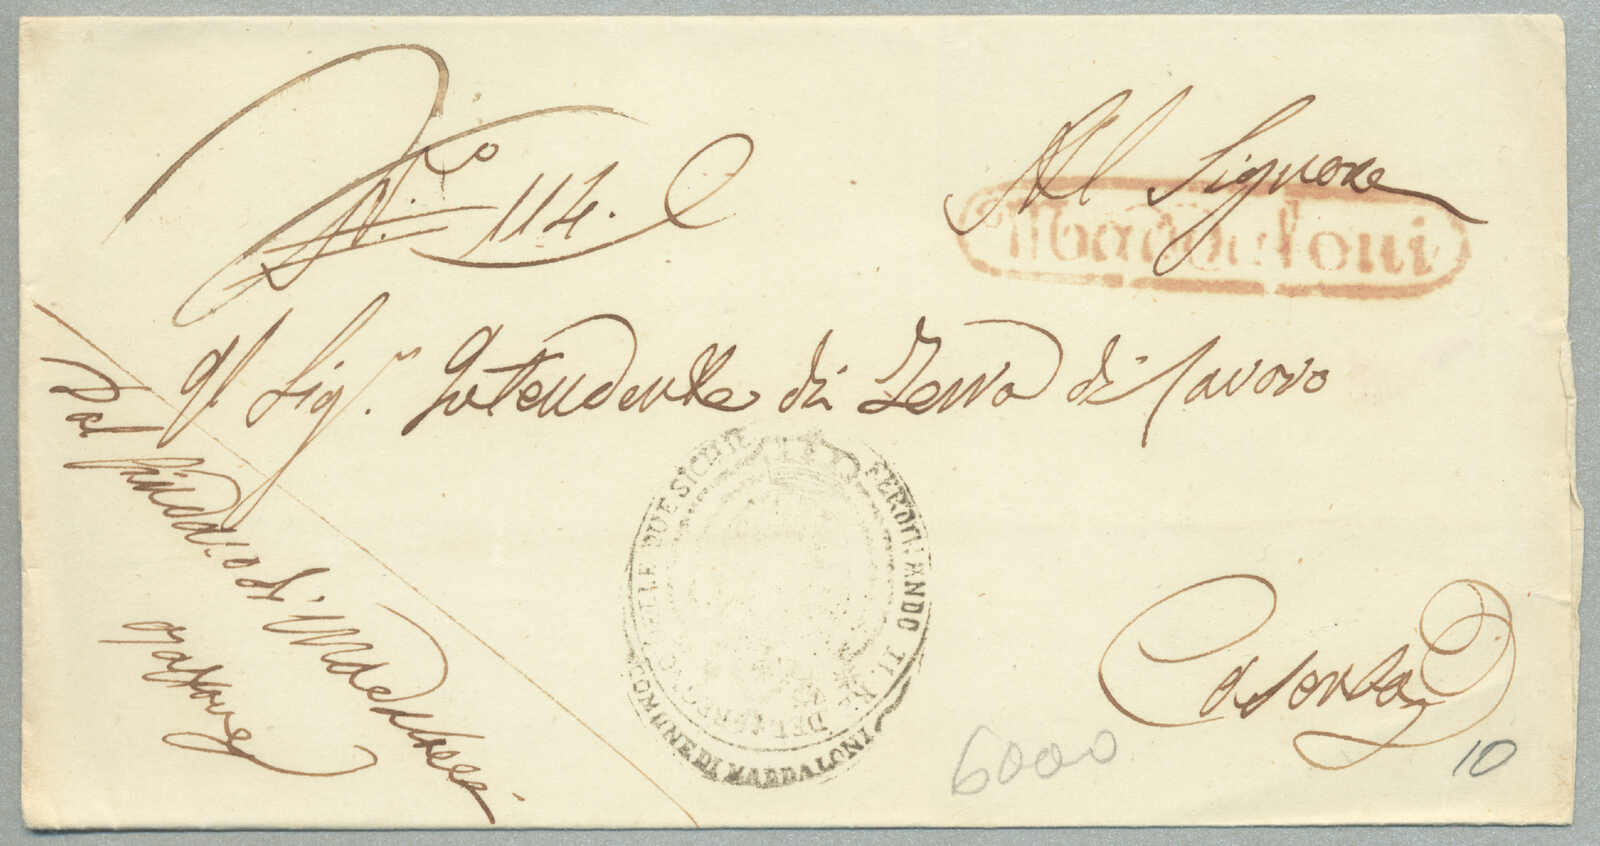 N.º 114.
Al Signore
Maddaloni
Al Sig.r Intendente di Terra di Lavoro
FERDINANDO II. RE DEL REGNO DELLE DUE SICILIE
COMUNE DI MADDALONI
Caserta
Dal Sindaco di Maddaloni
6000
10